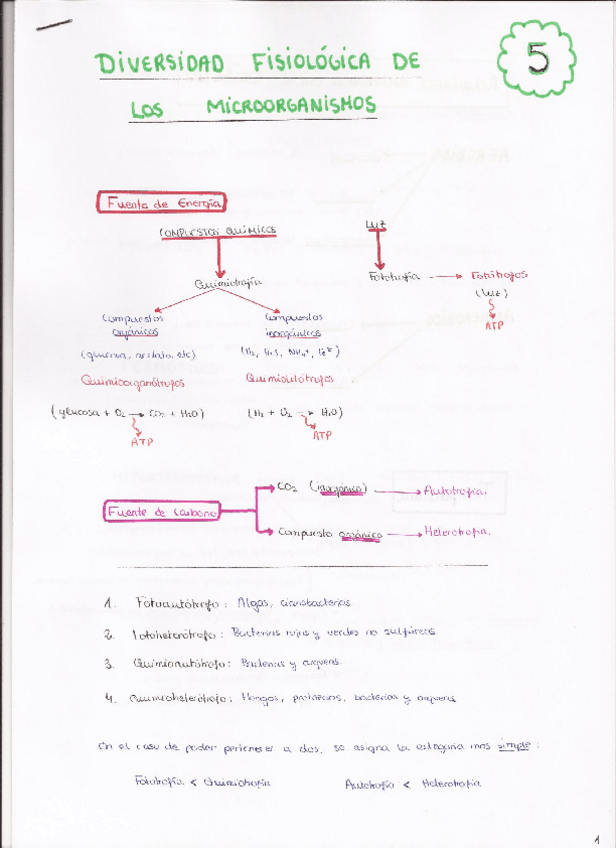 DIVERSIDAD FISIOLÓGICA DE
LOS MICROORGANISMOS
5
Fuente de Energía
COMPUESTOS QUÍMICOS
LUZ
Quimiotrofía
Fototrofía → Fotótrofos
(luz)
ATP
Compuestos orgánicos
Compuestos inorgánicos
(glucosa, acetato, etc)
(H₂, H₂S, NH₄⁺, Fe²⁺)
Quimioorganótrofos
Quimiolitótrofos
(glucosa + O₂ → CO₂ + H₂O)
(H₂ + O₂ → H₂O)
ATP
ATP
Fuente de Carbono
CO₂ (inorgánico) → Autotrofia.
Compuesto orgánico → Heterotrofia.
1. Fotoautótrofo: Algas, cianobacterias.
2. Fotoheterótrofo: Bacterias rojas y verdes no sulfúreas.
3. Quimioautótrofo: Bacterias y arqueas.
4. Quimioheterótrofo: Hongos, protozoos, bacterias y arqueas
En el caso de poder pertenecer a dos, se asigna la categoría más simple:
Fototrofía < Quimiotrofía
Autotrofía < Heterotrofía
1